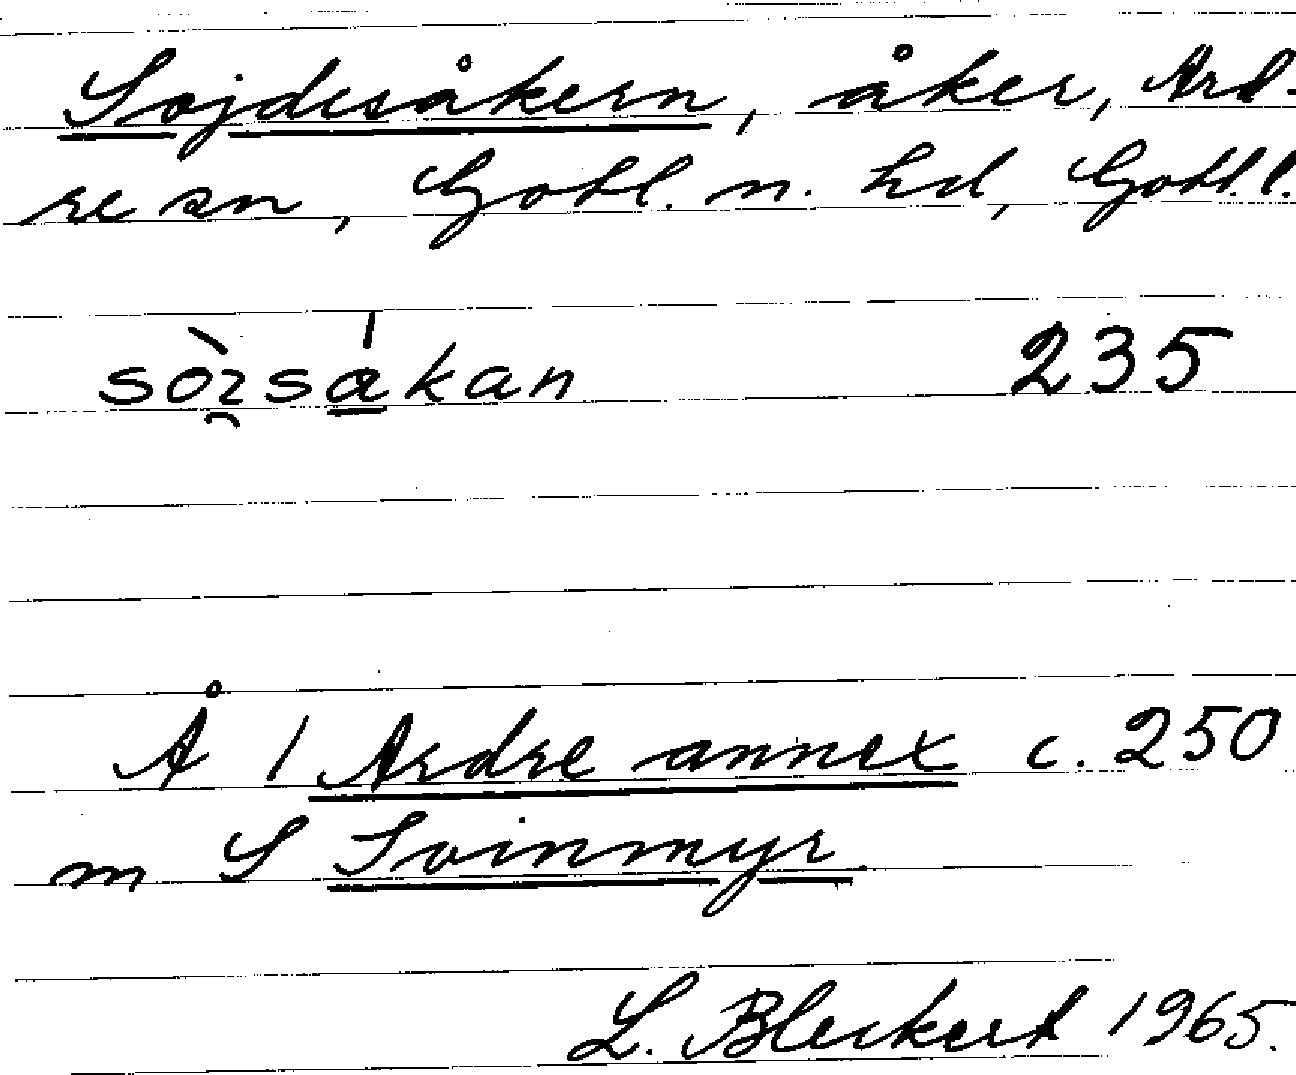 Sojdesåkern, åker, Ard-
re sn, Gotl. n. hd, Gotl. l.
235
Å i Ardre annex c. 250
m S Svinmyr
L. Bleckert 1965.